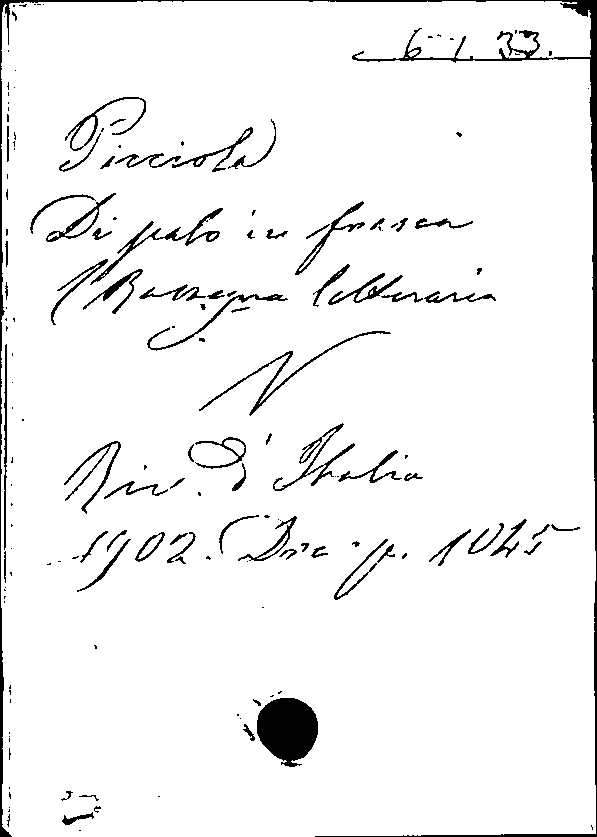 6.1.33.
Picciola
Di palo in frasca
(Rassegna letteraria
N
Riv. d'Italia
1902. Dic. p. 1045